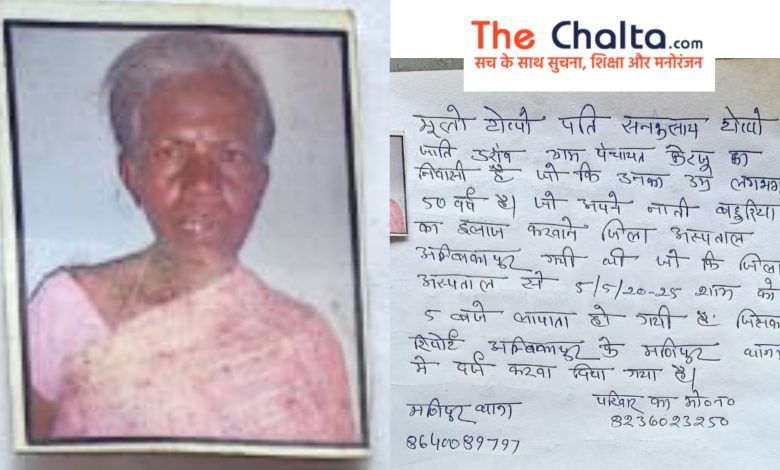 The Chalta.com
सच के साथ सुचना, शिक्षा और मनोरंजन
टोप्पो पति सनकुसाय टोप्पो
जाति उरांव ग्राम पंचायत केरजू का
निवासी है जो कि उनका उम्र लगभग
50 वर्ष है। जो अपने नाती
का इलाज कराने जिला अस्पताल
अम्बिकापुर गयी थी जो कि जिला
अस्पताल से 5/5/20-25 शाम को
5 बजे लापता हो गयी है जिसका
रिपोर्ट अम्बिकापुर के मणिपुर थाना
मे दर्ज करवा दिया गया है।
मणिपुर थाना
8640089797
परिवार का मो०न०
8236023250